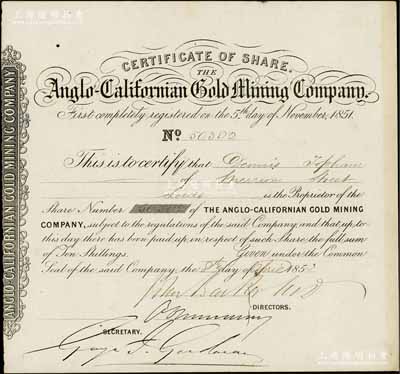 CERTIFICATE OF SHARE.
THE
Anglo-Californian Gold Mining Company.
First completely registered on the 5th day of November, 1851.
No 50302
This is to certify that Dennis Topham
of Street
Leeds is the Proprietor of the
Share Number of THE ANGLO-CALIFORNIAN GOLD MINING
COMPANY, subject to the regulations of the said Company, and that up to
this day there has been paid up in respect of such Share the full sum
of Ten Shillings. Given under the Common
Seal of the said Company, the day of 185
DIRECTORS.
SECRETARY.
ANGLO-CALIFORNIAN GOLD MINING COMPANY